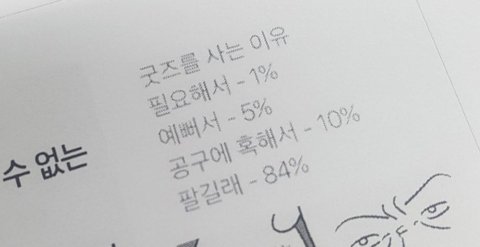 굿즈를 사는 이유
필요해서 - 1%
예뻐서 - 5%
공구에 혹해서 - 10%
팔길래 - 84%
수 없는